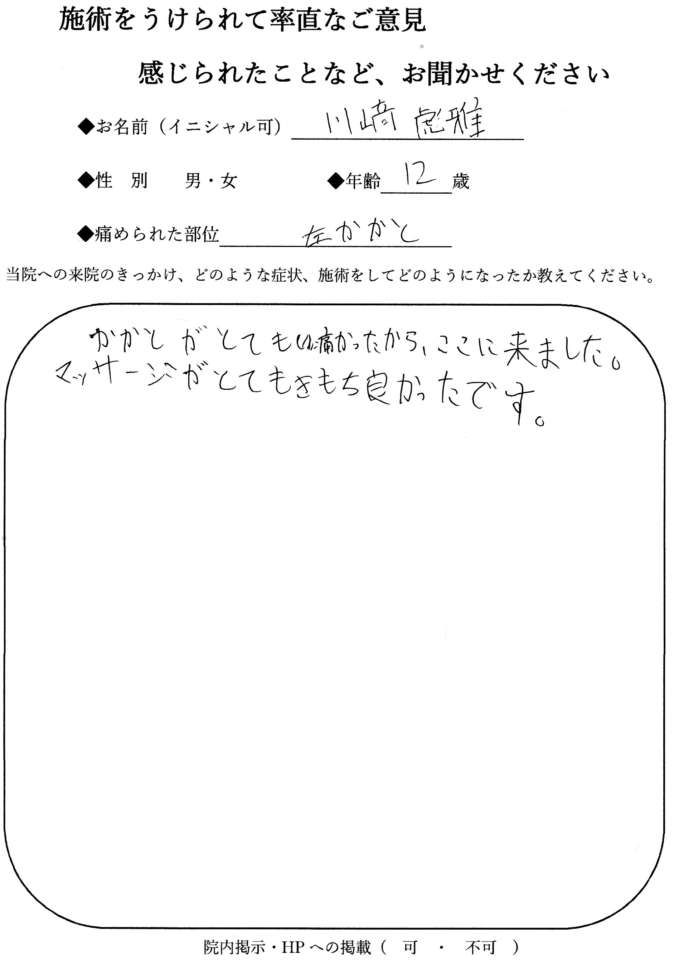 施術をうけられて率直なご意見
感じられたことなど、お聞かせください
◆お名前（イニシャル可） 川﨑 虎雅
◆性 別 男・女 ◆年齢 12 歳
◆痛められた部位 左かかと
当院への来院のきっかけ、どのような症状、施術をしてどのようになったか教えてください。
かかとがとても痛かったから、ここに来ました。
マッサージがとてもきもち良かったです。
院内掲示・HPへの掲載（ 可 ・ 不可 ）